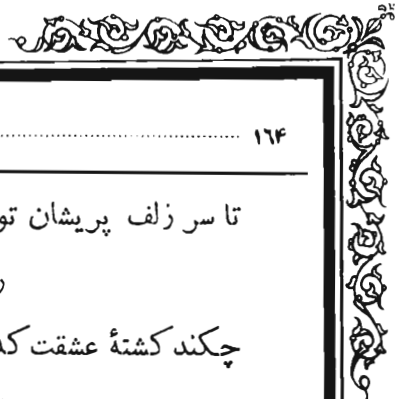 ۱۶۴
تا سر زلف پریشان تو
چکند کشتهٔ عشقت که